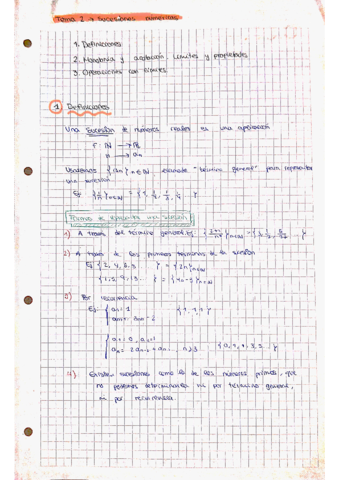 Tema 2 → Sucesiones numéricas
1. Definiciones
2. Monotonía y acotación. Límites y propiedades
3. Operaciones con límites
1) Definiciones
Una sucesión de números reales es una aplicación
F: ℕ → ℝ
n → an
Usaremos {an} n∈ℕ, llamado "término general" para representar
una sucesión.
Ej: {1/n} n∈ℕ = {1, 1/2, 1/3, 1/4 }
Formas de representar una sucesión
1) A través del término general.
2) A través de los primeros términos de la sucesión
3) Por recurrencia
Ej:
4) Existen sucesiones como la de los números primos, que
no podemos determinarla ni por término general,
ni por recurrencia.